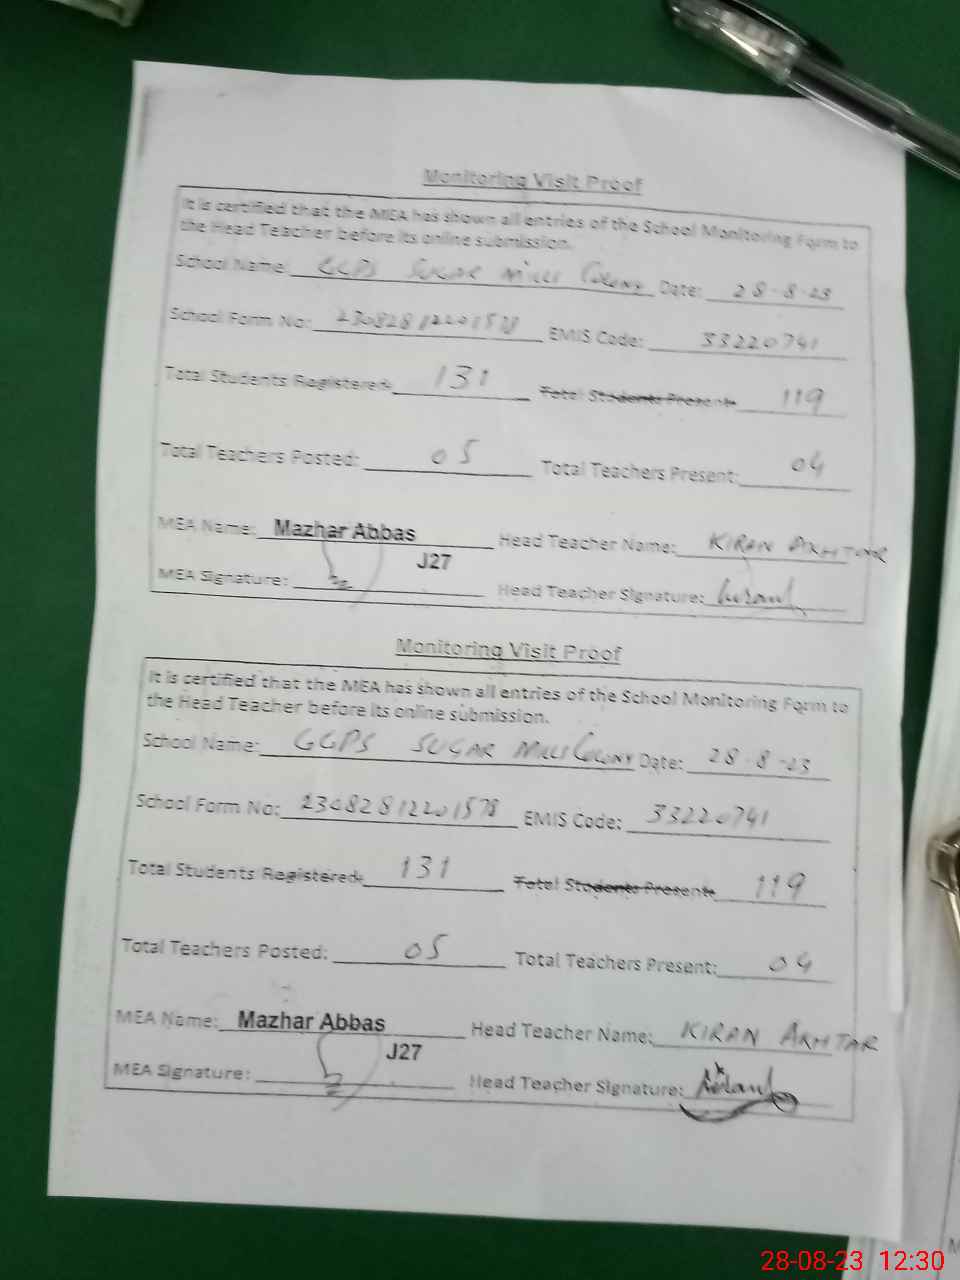 Monitoring Visit Proof
It is certified that the MEA has shown all entries of the School Monitoring Form to
the Head Teacher before its online submission.
School Name: GGPS SUGAR MILLS COLONY Date: 28-8-23
School Form No: 23082812201578 EMIS Code: 33220741
Total Students Registered: 131 Total Students Present: 119
Total Teachers Posted: 05 Total Teachers Present: 04
MEA Name: Mazhar Abbas Head Teacher Name: KIRAN AKHTAR
J27
MEA Signature: Head Teacher Signature: Kiran
Monitoring Visit Proof
It is certified that the MEA has shown all entries of the School Monitoring Form to
the Head Teacher before its online submission.
School Name: GGPS SUGAR MILLS COLONY Date: 28-8-23
School Form No: 23082812201578 EMIS Code: 33220741
Total Students Registered: 131 Total Students Present: 119
Total Teachers Posted: 05 Total Teachers Present: 04
MEA Name: Mazhar Abbas Head Teacher Name: KIRAN AKHTAR
J27
MEA Signature: Head Teacher Signature: Kiran
28-08-23 12:30